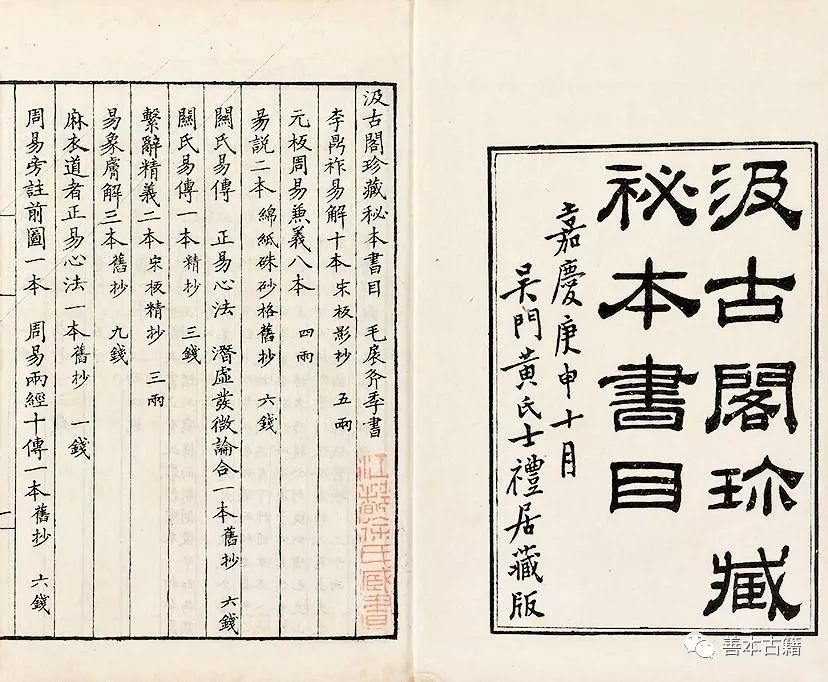 汲古閣珍藏
秘本書目
嘉慶庚申十月
吴門黄氏士禮居藏版
汲古閣珍藏秘本書目 毛扆斧季書
李鼎祚易解十本 宋板影抄 五兩
元板周易兼義八本 四兩
易説二本 綿紙硃砂格舊抄 六錢
關氏易傳 正易心法 潛虚發微論合一本舊抄 六錢
關氏易傳一本 精抄 三錢
繫辭精義二本 宋板精抄 三兩
易象膚解三本 舊抄 九錢
麻衣道者正易心法一本 舊抄 一錢
周易旁註前圖一本 周易兩經十傳一本舊抄 六錢
江都徐氏臧書
善本古籍